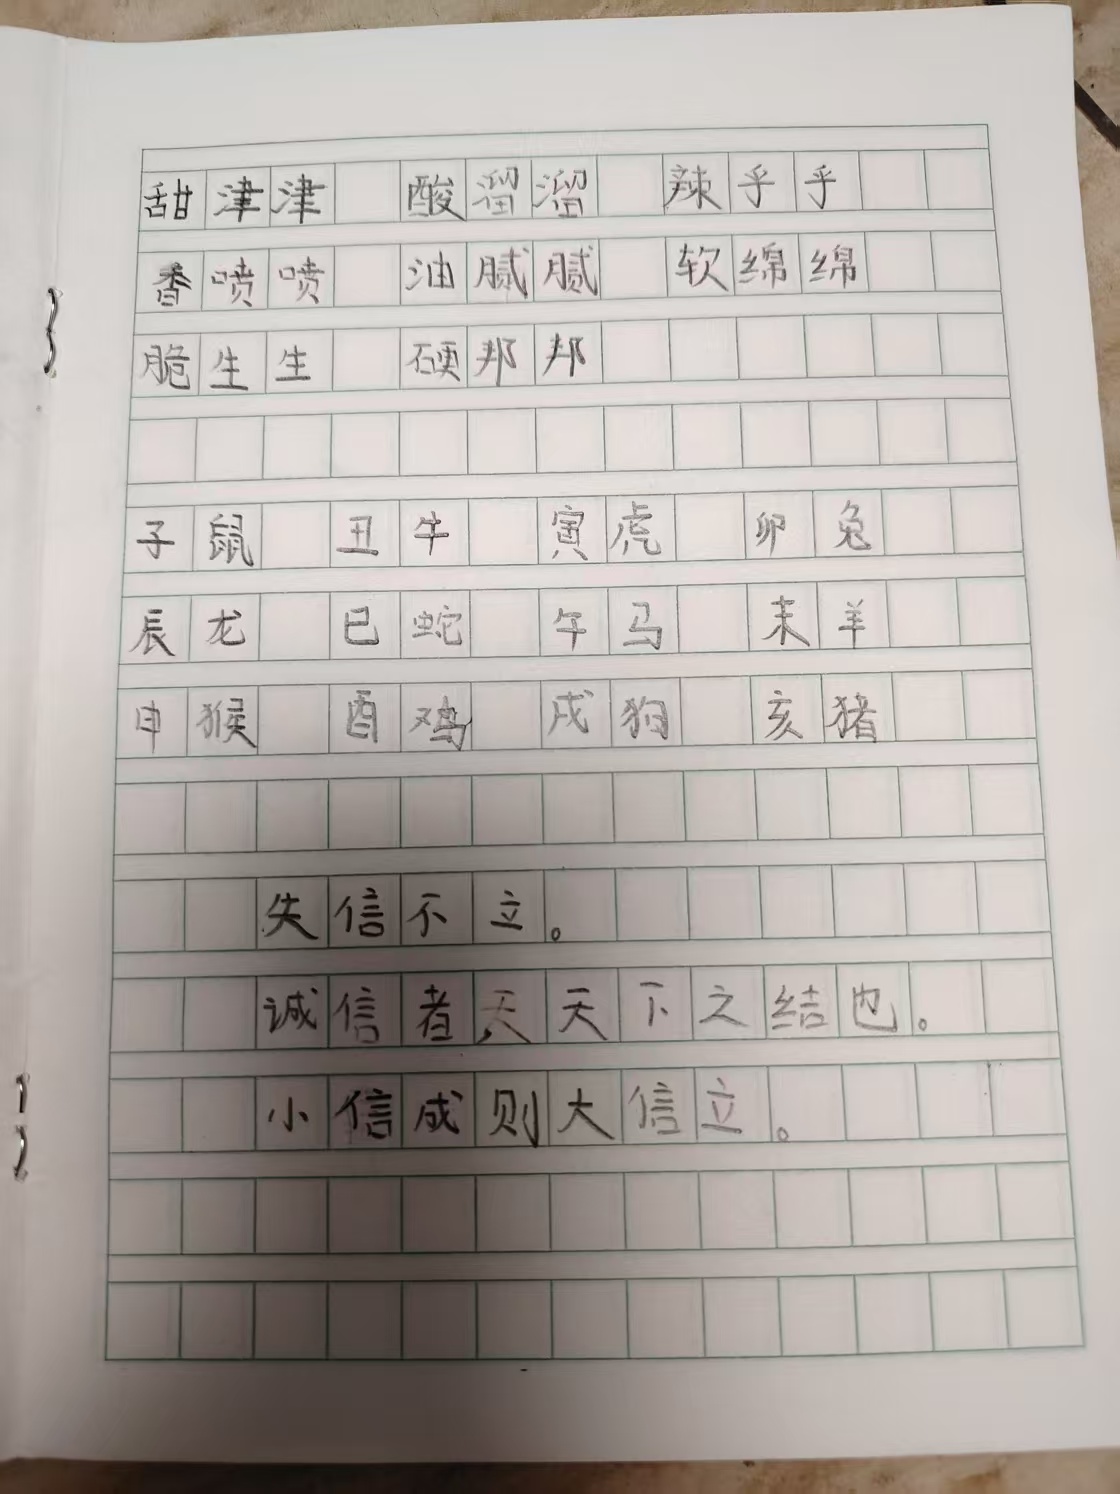 甜津津 酸溜溜 辣乎乎
香喷喷 油腻腻 软绵绵
脆生生 硬邦邦
子鼠 丑牛 寅虎 卯兔
辰龙 巳蛇 午马 未羊
申猴 酉鸡 戌狗 亥猪
失信不立。
诚信者天天下之结也。
小信成则大信立。